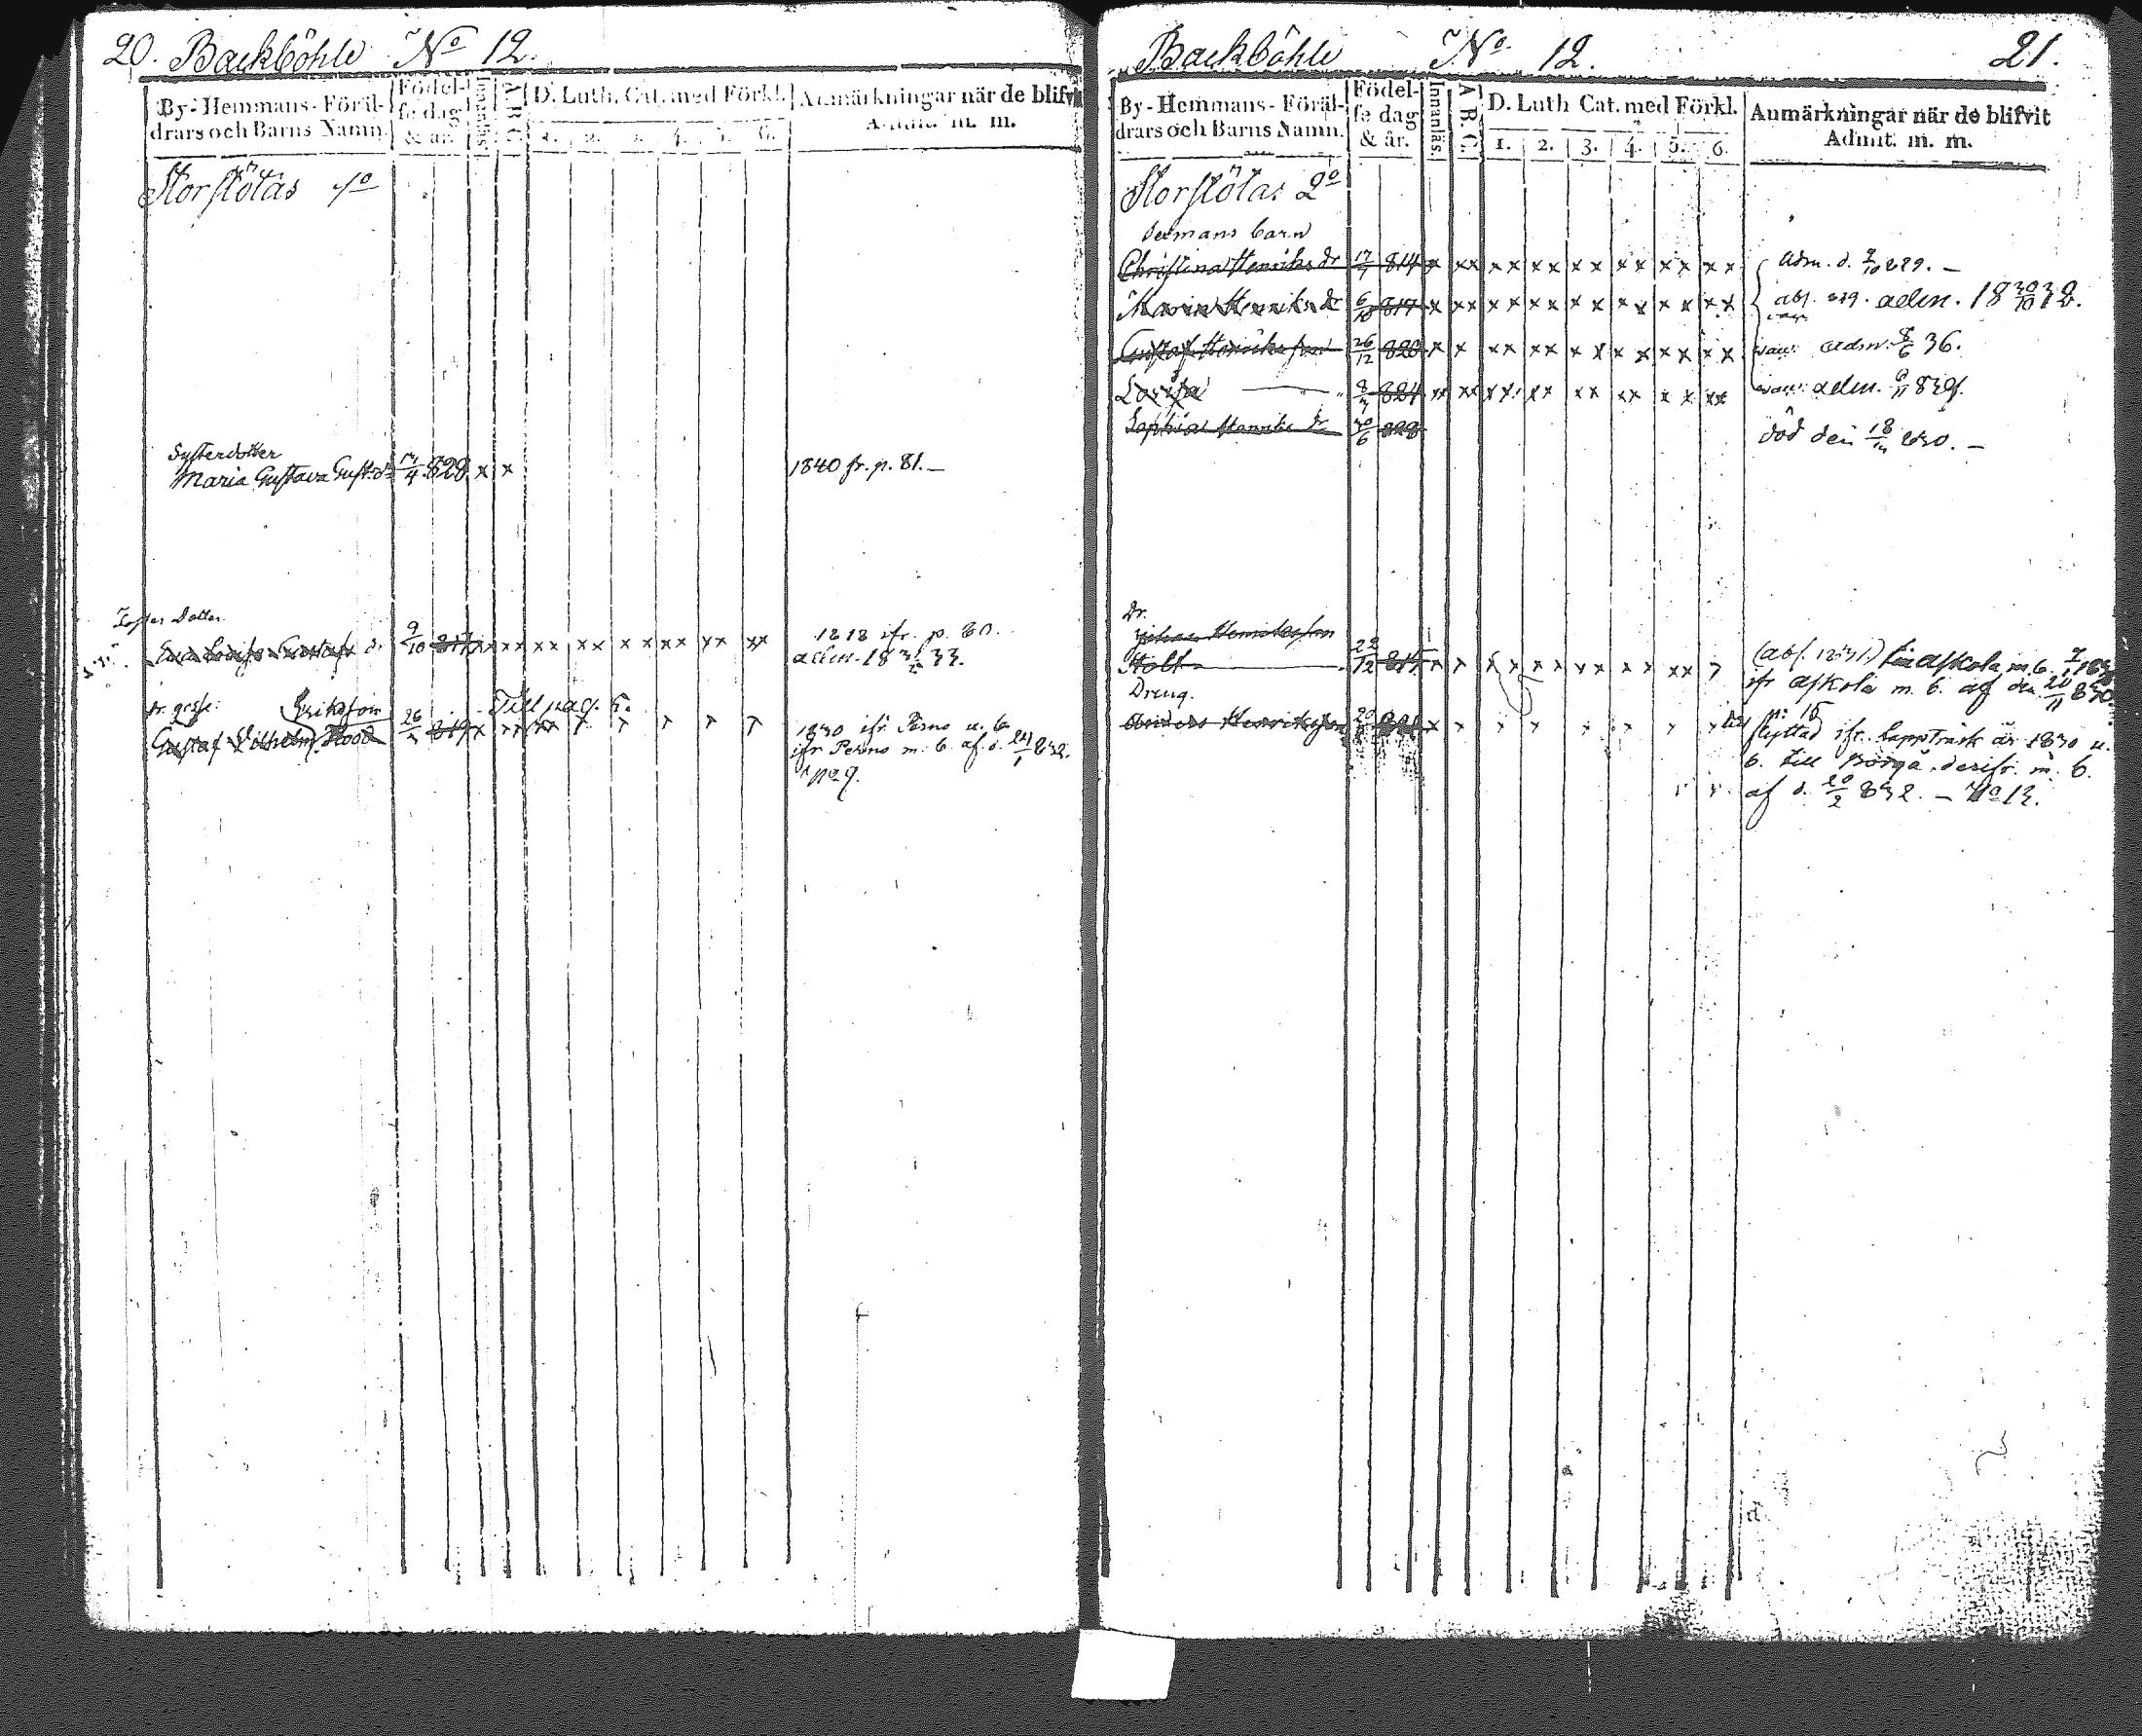 20. Backböhle No 12.
By-Hemmans-Föräl-
drars och Barns Namn.
Födel-
se dag
& år.
Innanläs.
A B C.
D. Luth. Cat. med Förkl.
1. 2. 3. 4. 5. 6.
Anmärkningar när de blifvit
Admit. m. m.
Storslötas 1o
Systerdotter
Maria Gustava Gust. dr 4 828 x x 1840 fr. p. 81.
Dotter
9/10 817 x x x x x x x x x x x x x x x 1818 ifr. p. 80.
adm. 18 33.
Eriksson Till pag. 5.
Gustaf Wilhelm Flood 26 819 1830 ifr. Perno u. b.
ifr Perno m. b. af d. 24/1 832.
Backböhle No. 12. 21.
By-Hemmans-Föräl-
drars och Barns Namn.
Födel-
se dag
& år.
Innanläs.
A B C.
D. Luth Cat. med Förkl.
1. 2. 3. 4. 5. 6.
Anmärkningar när de blifvit
Admit. m. m.
Storslötas 2o
barn
Christina Henriks dr 17 814 x x x x x x x x x x x x x x x adm. d. 829.
Maria Henriks dr 6/10 817 x x x x x x x x x x x x x x x abs. 829. adm. 18 30/10 32.
Gustaf Henriksson 26/12 820 x x x x x x x x x x x x x x adm. 6 36.
Lovisa 8 824 x x x x x x x x x x x x x x x x adm. 9/11 839.
Sophia Henriks dr 30/6 828 död den 18 830.
Dr.
Johan Henriksson
Holt 22/12 till Askola m. b.
ifr Askola m. b. af den 20/11 830
Dreng.
Anders Henriksson
p: 15
flyttad ifr. Lappträsk år 1830 u.
b. till Borgå, derifr. m. b.
af d. 20/2 832. – No 13.